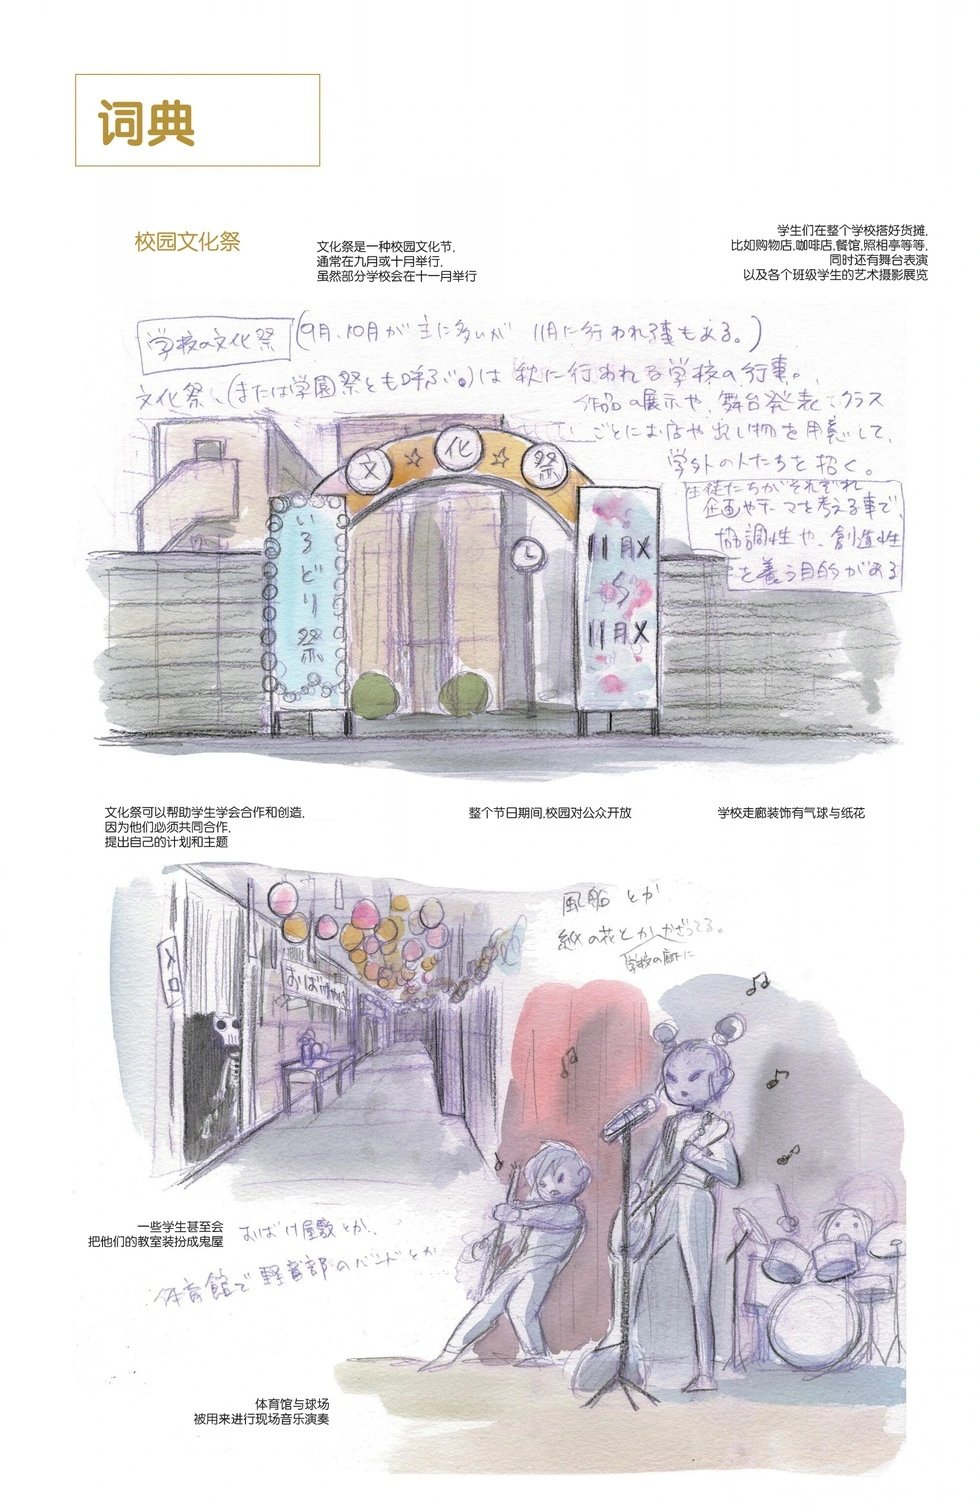 词典
校园文化祭
文化祭是一种校园文化节,
通常在九月或十月举行,
虽然部分学校会在十一月举行
学生们在整个学校搭好货摊,
比如购物店,咖啡店,餐馆,照相亭等等,
同时还有舞台表演
以及各个班级学生的艺术摄影展览
学校の文化祭 (9月、10月が主に多いが 11月に行われる事もある。)
文化祭、(または学園祭とも呼ぶ。)は 秋に行われる学校の行事。
作品の展示や、舞台発表、クラス
ごとにお店や出し物を用意して、
学外の人たちを招く。
生徒たちがそれぞれ
企画やテーマを考える事で、
協調性や、創造性
を養う目的がある
文化祭
いろどり祭
11月
11月
文化祭可以帮助学生学会合作和创造,
因为他们必须共同合作,
提出自己的计划和主题
整个节日期间,校园对公众开放
学校走廊装饰有气球与纸花
風船 とか
紙の花とかかざってる。
学校の廊下に
入口
おばけやしき
一些学生甚至会
把他们的教室装扮成鬼屋
おばけ屋敷とか、
体育館で軽音部のバンドとか
体育馆与球场
被用来进行现场音乐演奏